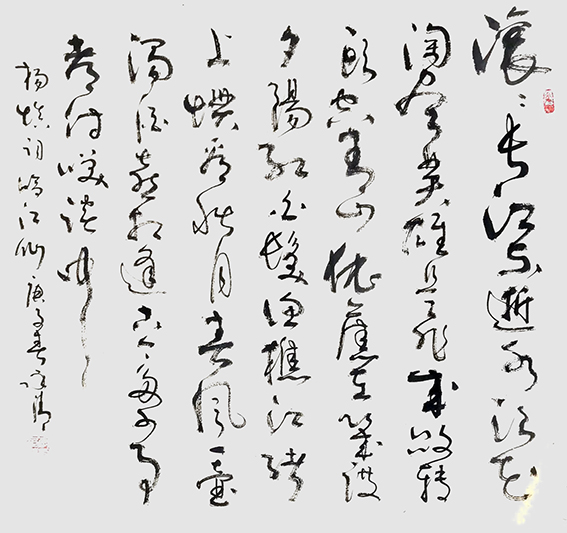 滚〻长江东逝水浪花
淘尽英雄是非成敗转
头空青山依舊在几度
夕陽红白髮渔樵江渚
上惯看秋月春风一壶
濁酒喜相逢古今多少事
都付笑谈中
杨慎词临江仙庚子春